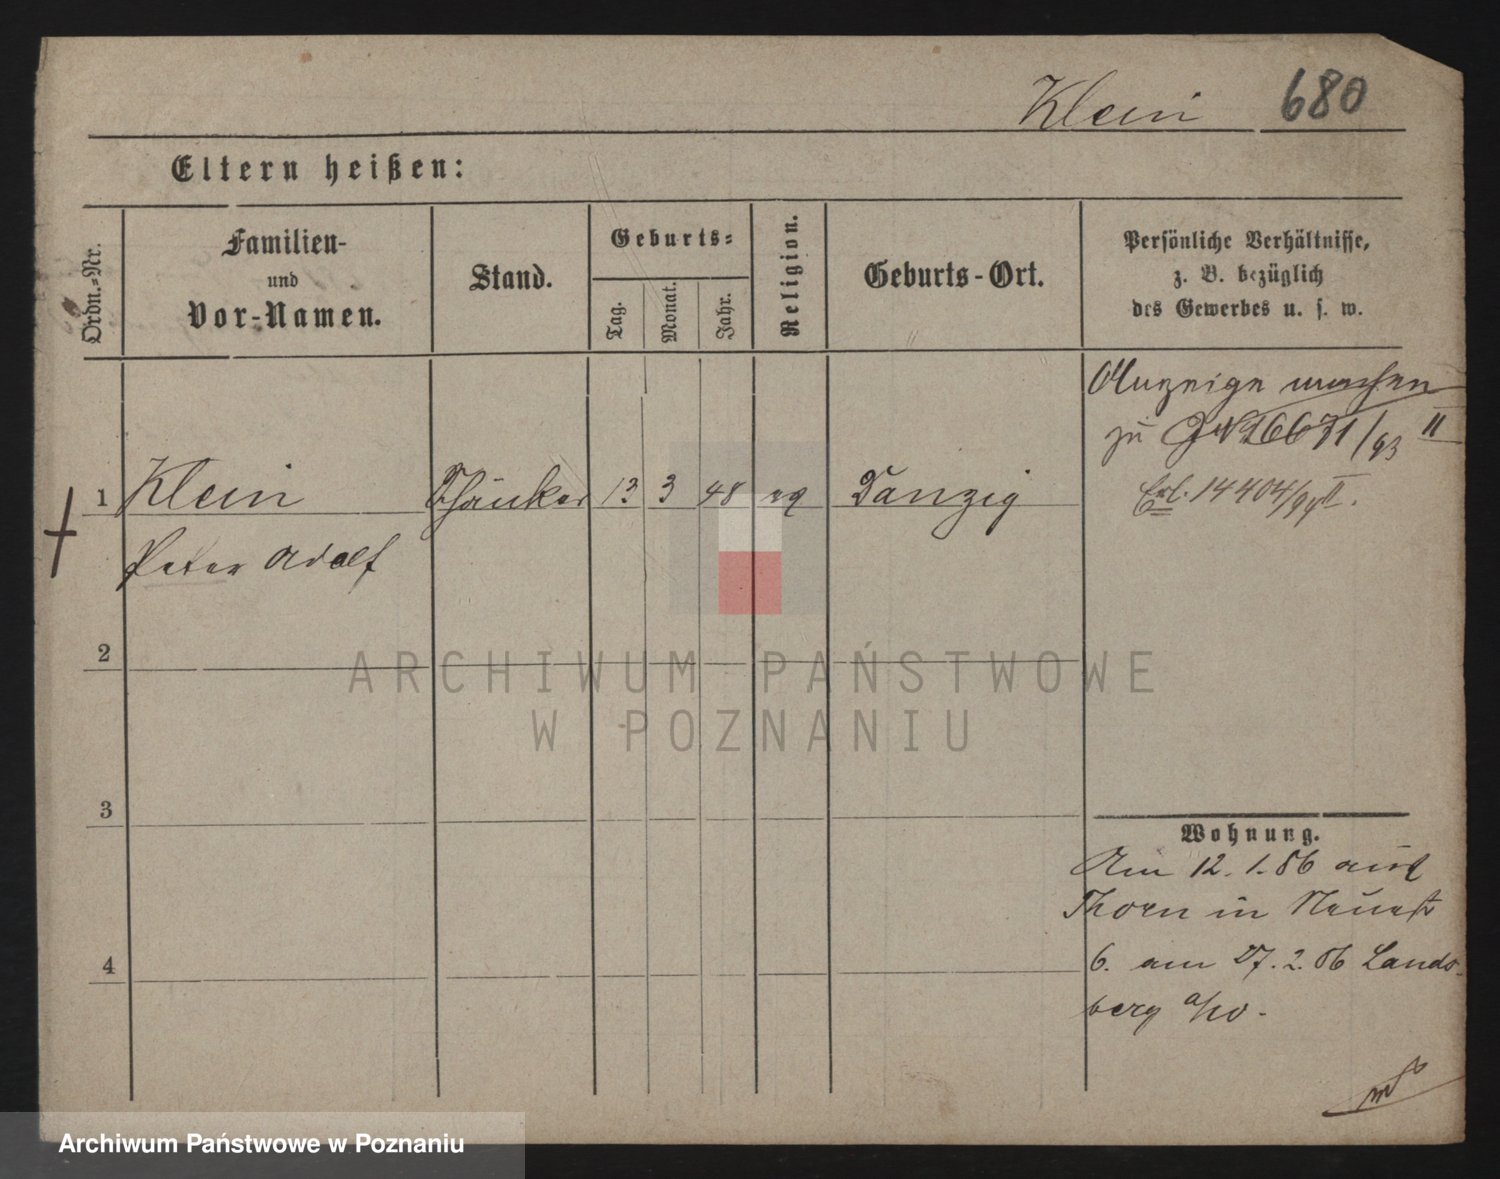 Klein 680
Eltern heißen:
Ordn.-Nr.
Familien-
und
Vor-Namen.
Stand.
Geburts-
Tag.
Monat.
Jahr.
Religion.
Geburts-Ort.
Persönliche Verhältnisse,
z. B. bezüglich
des Gewerbes u. s. w.
Anzeige machen
zu 16671/93 II
Erl. 14404/94 II.
1 Klein Schänker 13 3 48 ev Danzig
Peter Adolf
2
3
4
Wohnung.
Am 12.1.86 aus
Thorn in Neuestr
6. am 27.2.86 Lands-
berg a/W.
ARCHIWUM PAŃSTWOWE
W POZNANIU
Archiwum Państwowe w Poznaniu